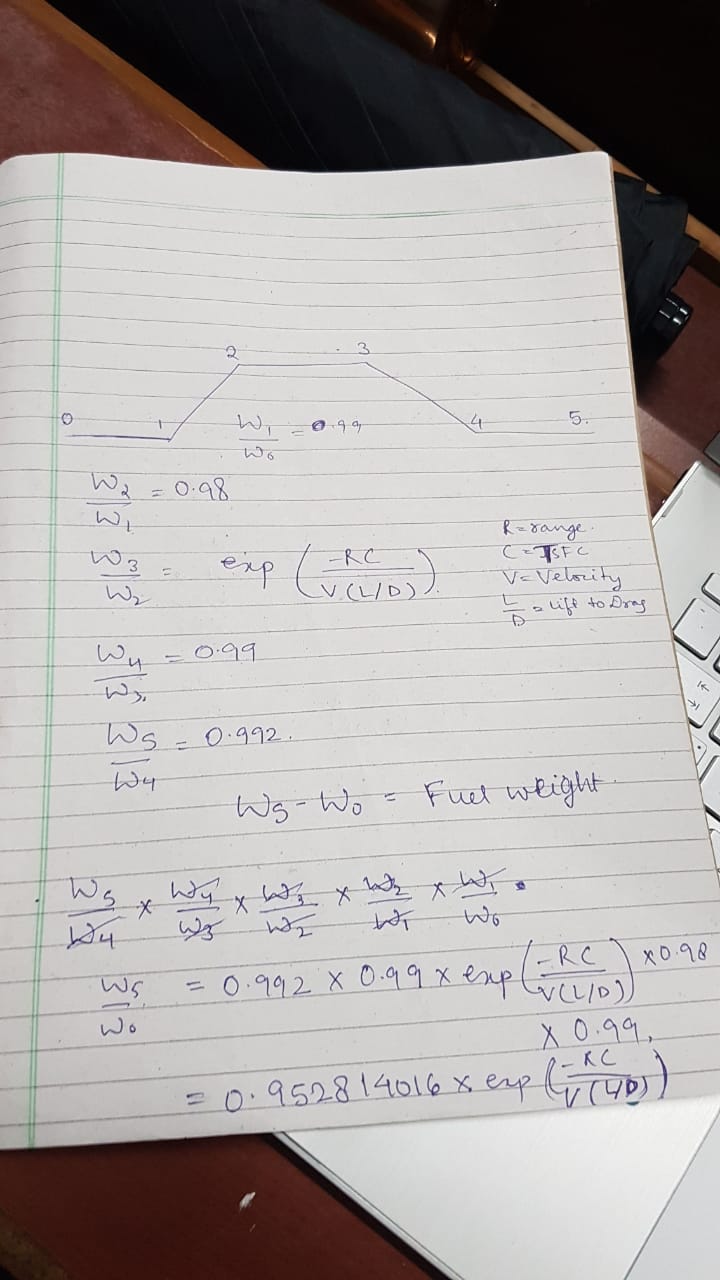 2 3
0 1 4 5.
W₁/W₀ = 0.99
W₂/W₁ = 0.98
R = range.
C = TSFC
V = Velocity
L/D = Lift to Drag
W₃/W₂ = exp (-RC / V(L/D)).
W₄/W₃ = 0.99
W₅/W₄ = 0.992.
W₅ - W₀ = Fuel weight.
W₅/W₄ × W₄/W₃ × W₃/W₂ × W₂/W₁ × W₁/W₀
W₅/W₀ = 0.992 × 0.99 × exp (-RC / V(L/D)) × 0.98
× 0.99,
= 0.952814016 × exp (-RC / V(L/D))